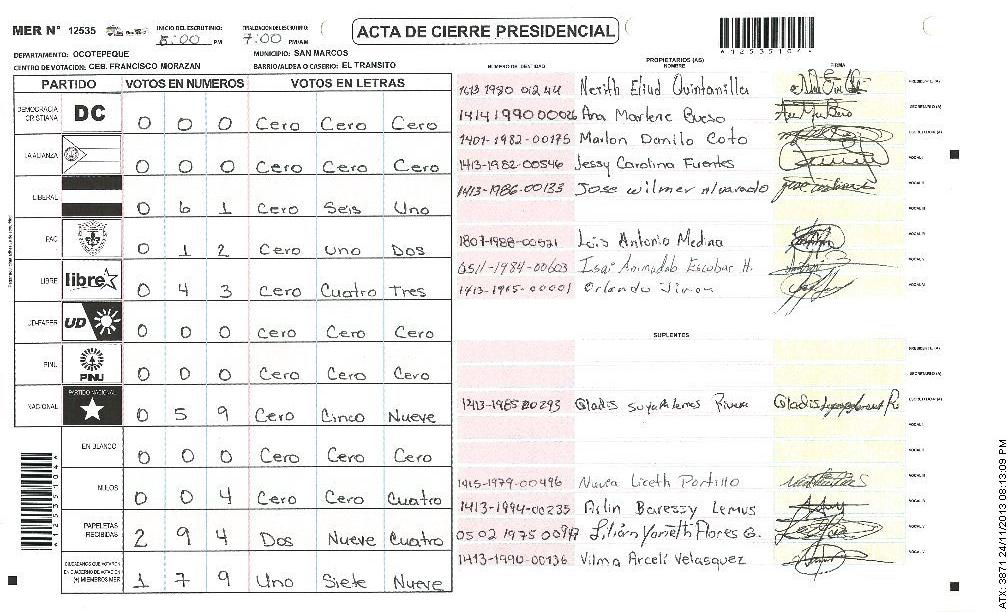 MER N° 12535
INICIO DEL ESCRUTINIO: 5:00 PM
FINALIZACION DEL ESCRUTINIO: 7:00 PM/AM
ACTA DE CIERRE PRESIDENCIAL
DEPARTAMENTO: OCOTEPEQUE
MUNICIPIO: SAN MARCOS
CENTRO DE VOTACIÓN: CEB. FRANCISCO MORAZAN
BARRIO/ALDEA O CASERIO: EL TRANSITO
PARTIDO VOTOS EN NUMEROS VOTOS EN LETRAS
DEMOCRACIA CRISTIANA DC 0 0 0 Cero Cero Cero
LA ALIANZA 0 0 0 Cero Cero Cero
LIBERAL 0 6 1 Cero Seis Uno
PAC 0 1 2 Cero Uno Dos
LIBRE libre 0 4 3 Cero Cuatro Tres
UD-FAPER UD 0 0 0 Cero Cero Cero
PINU PINU 0 0 0 Cero Cero Cero
NACIONAL PARTIDO NACIONAL 0 5 9 Cero Cinco Nueve
EN BLANCO 0 0 0 Cero Cero Cero
NULOS 0 0 4 Cero Cero Cuatro
PAPELETAS RECIBIDAS 2 9 4 Dos Nueve Cuatro
CIUDADANOS QUE VOTARON EN CUADERNO DE VOTACION (+) MIEMBROS MER 1 7 9 Uno Siete Nueve
A12535104
PROPIETARIOS (AS)
NUMERO DE IDENTIDAD NOMBRE FIRMA
1413 1980 01244 Nerith Eliud Quintanilla PRESIDENTE (A)
1414 1990 00026 Ana Marlene Bueso SECRETARIO (A)
1401-1982-00175 Marlon Danilo Coto ESCRUTADOR (A)
1413-1982-00546 Jessy Carolina Fuentes VOCAL I
1413-1986-00133 Jose Wilmer Alvarado VOCAL II
VOCAL III
1807-1988-00521 Luis Antonio Medina VOCAL IV
0511-1984-00603 Isai Escobar H. VOCAL V
1413-1965-00001 Orlando VOCAL VI
SUPLENTES
PRESIDENTE (A)
SECRETARIO (A)
1413-1985 00293 Gladis Rivera ESCRUTADOR (A)
VOCAL I
VOCAL II
1415-1979-00496 Liceth Portillo VOCAL III
1413-1994-00235 Aslin Baressy Lemus VOCAL IV
0502 1975 Lilian Yaneth Flores G. VOCAL V
1413-1990-00136 Vilma Arceli Velasquez VOCAL VI
A12535104
ATX: 3871 24/11/2013 08:13:09 PM